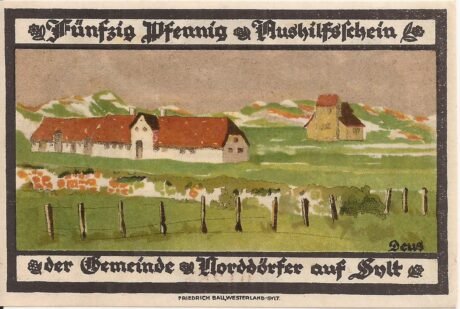 Fünfzig Pfennig Aushilfsschein
Deus
der Gemeinde Norddörfer auf Sylt
FRIEDRICH BALL, WESTERLAND-SYLT.